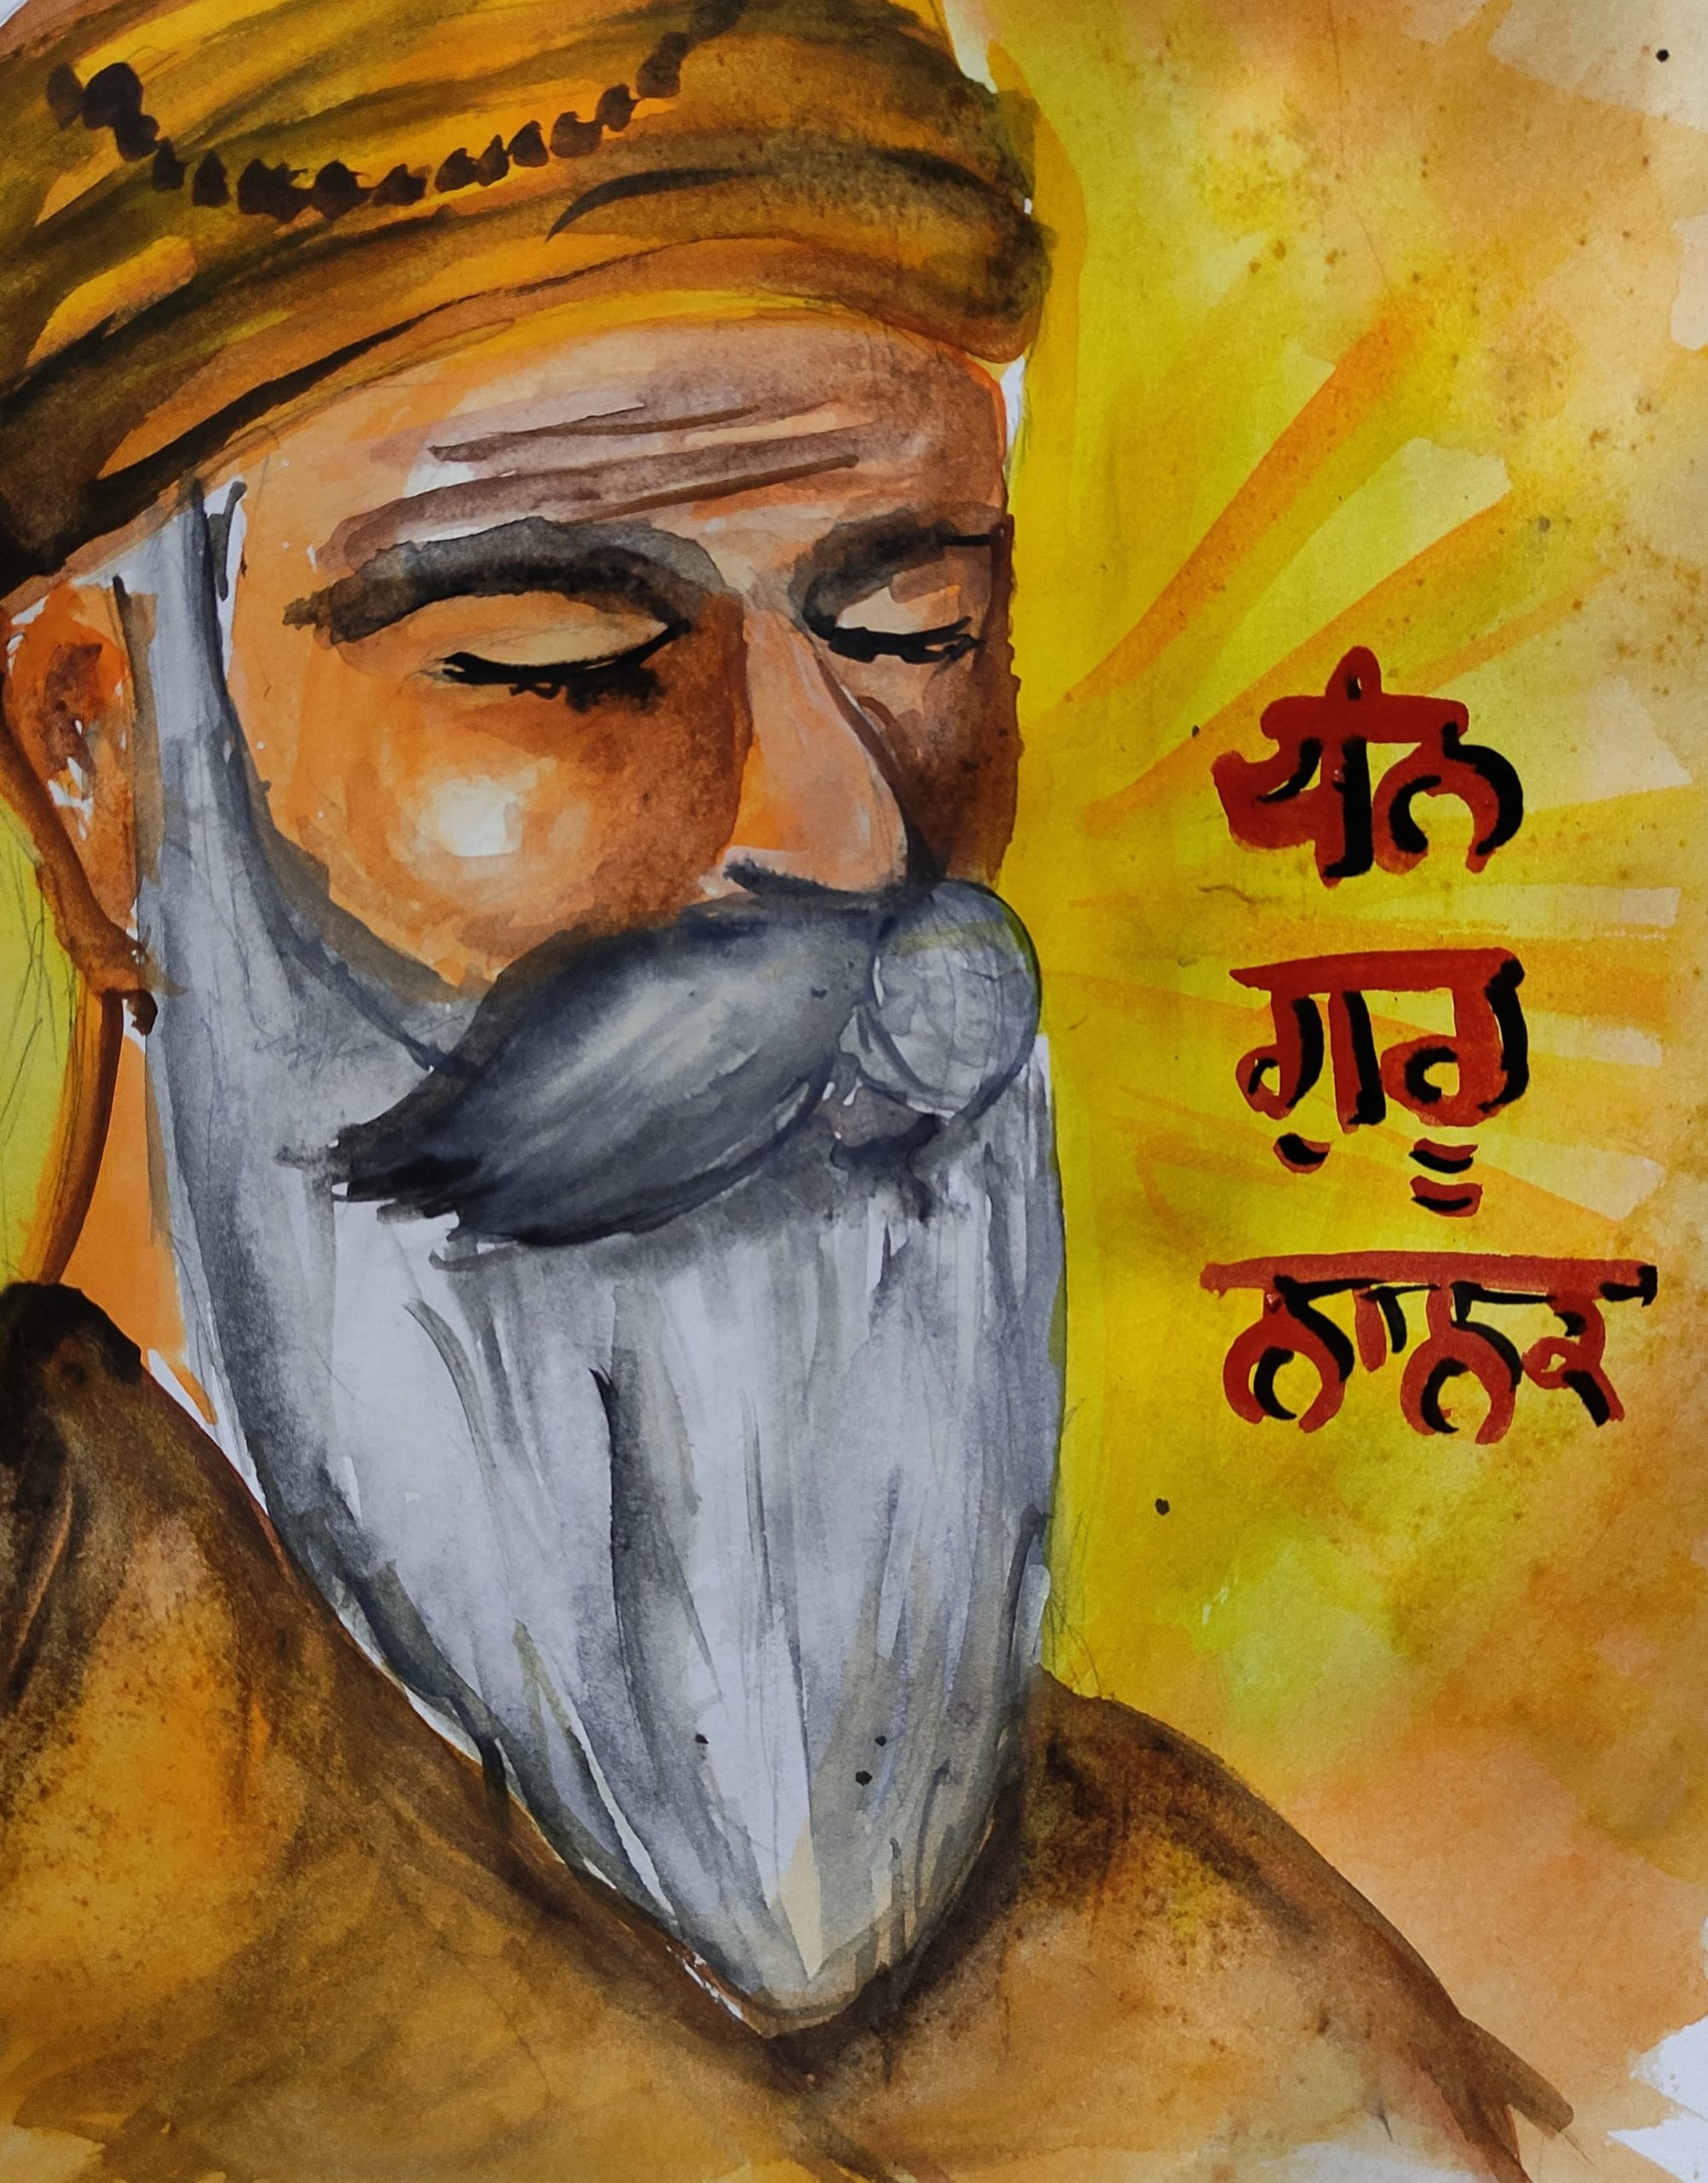 ਧੰਨ
ਗੁਰੂ
ਨਾਨਕ